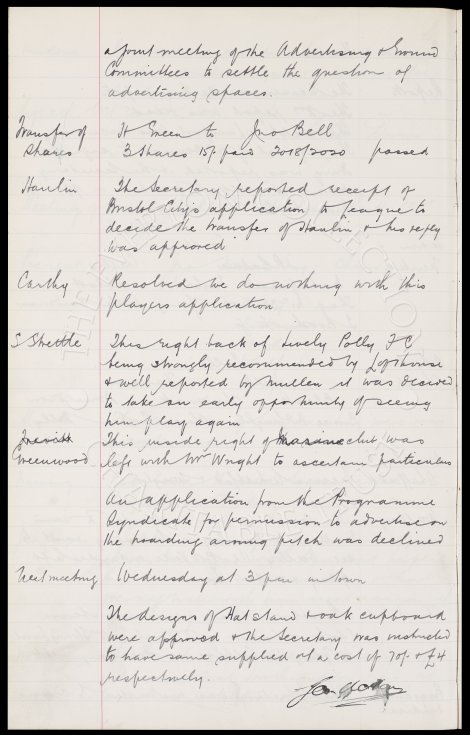 a joint meeting of the Advertising & Ground
Committees to settle the question of
advertising spaces.
Transfer of Shares H Green to Jno Bell
3 Shares 15/- paid 2018/2020 passed
Hanlin The Secretary reported receipt of
Bristol City's application to League to
decide the transfer of Hanlin & his reply
was approved
Carthy Resolved we do nothing with this
players application
S Shettle This right back of Lively Polly FC
being strongly recommended by Lofthouse
& well reported by Mullen it was decided
to take an early opportunity of seeing
him play again
Greenwood This inside right of Marine club was
left with Mr Wright to ascertain particulars
An application from the Programme
Syndicate for permission to advertise on
the hoarding around pitch was declined
Next meeting Wednesday at 3 p.m. in town
The designs of Hat stand & oak cupboard
were approved & the Secretary was instructed
to have same supplied at a cost of 70/- & £4
respectively.